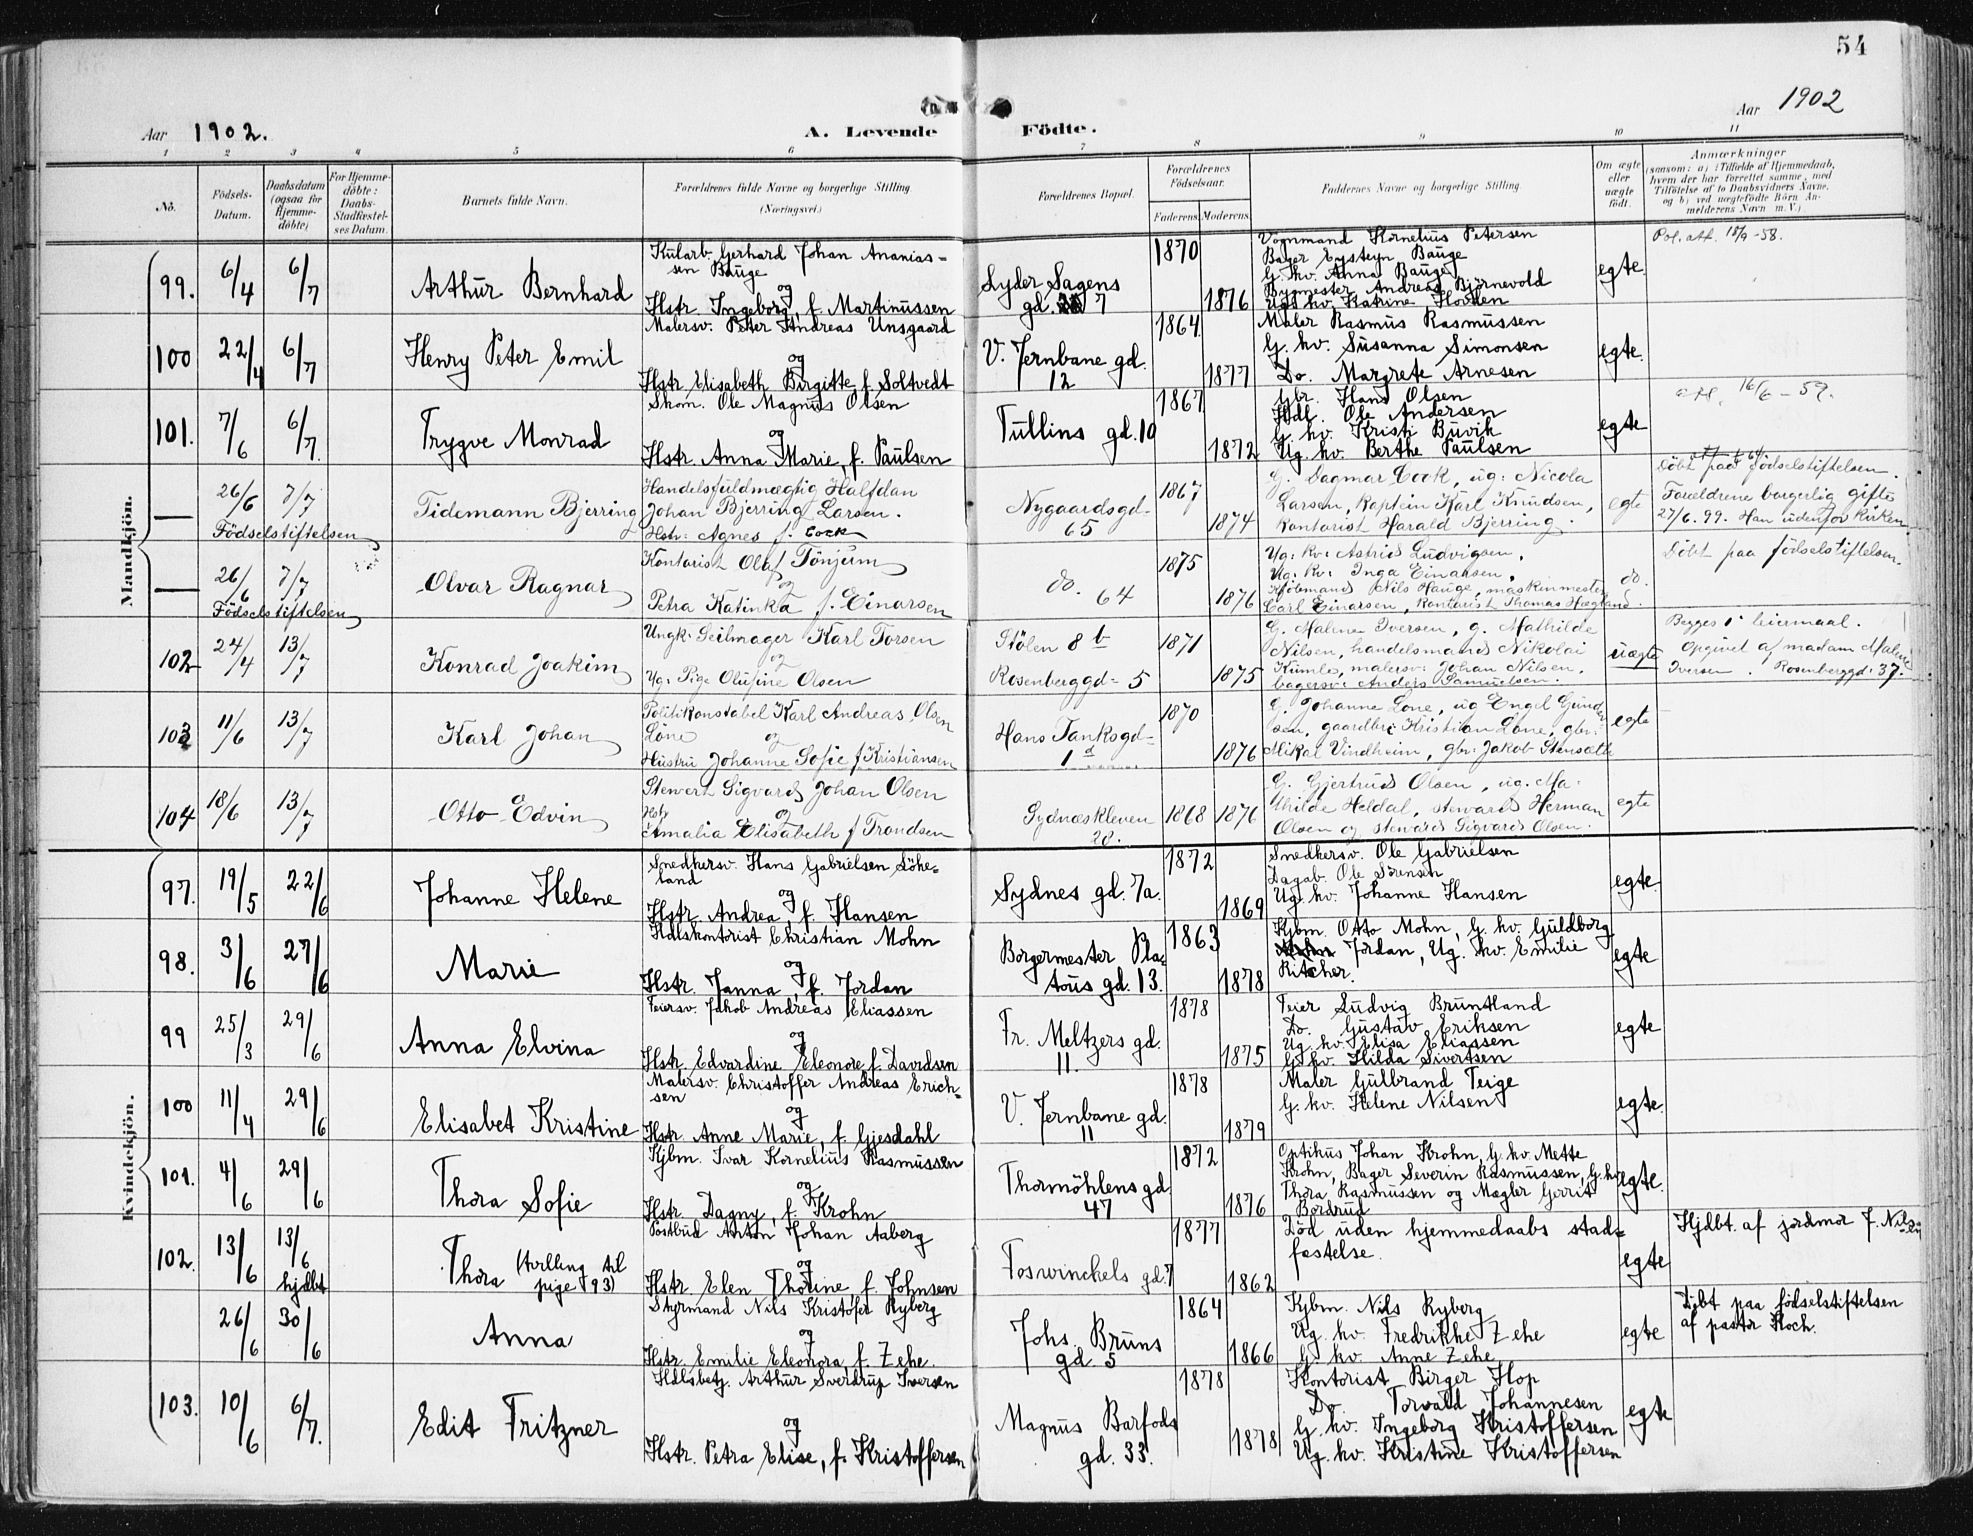 54
Aar 1902.
A. Levende Födte.
Aar 1902
1 2 3 4 5 6 7 8 9 10 11
No.
Födsels-Datum.
Daabsdatum (ogsaa for Hjemmedöbte)
For Hjemmedöbte: Daabs-Stadfæstelses Datum.
Barnets fulde Navn.
Forældrenes fulde Navne og borgerlige Stilling (Næringsvei.)
Forældrenes Bopæl.
Forældrenes Födselsaar.
Faderens Moderens
Faddernes Navne og borgerlige Stilling.
Om ægte eller uægte födt.
Anmærkninger
(saasom: a) i Tilfælde af Hjemmedaab, hvem der har forrettet samme, med Tilföielse af to Daabsvidners Navne, og b) ved uægtefödte Börn Anmelderens Navn m. V.)
Mandkjön.
99. 6/4 6/7
Arthur Bernhard
Kularb. Gerhard Johan Ananias-
sen Bauge
og
Hstr. Ingeborg, f. Martinussen
Lyder Sagens
gd. 7
1870
1876
Vognmand Kornelius Petersen
Bager Eysteyn Bauge
G. kv. Anna Bauge
Bygmester Andreas Björnevold
Ug. kv. Katrine Hovden
egte
Pol. att. 18/9-58.
100 22/4 6/7
Henry Peter Emil
Malersv. Peter Andreas Unsgaard
og
Hstr. Elisabeth Birgitte, f. Soltvedt
V. Jernbane gd.
12
1864
1877
Maler Rasmus Rasmussen
G. kv. Susanna Simonsen
Do. Margrete Arnesen
egte.
101. 7/6 6/7
Trygve Monrad
Skom. Ole Magnus Olsen
og
Hstr. Anna Marie, f. Paulsen
Tullins gd. 10
1867
1872
Gbr. Hans Olsen
Hdl. Ole Andersen
G. kv. Kristi Buvik
Ug. kv. Berthe Paulsen
egte
att. 16/6-59.
— 26/6 7/7
Födselstiftelsen
Tidemann Bjerring
Handelsfuldmægtig Halfdan
Johan Bjerring Larsen.
Hstr: Agnes f. Cock
Nygaardsgd-
65
1867
1874
G. Dagmar Cock, ug: Nicola
Larsen, Kaptein Karl Knudsen,
Kontorist Harald Bjerring.
egte
Döbt paa Födselstiftelsen.
Forældrene borgerlig gifte
27/6. 99. Han udenfor kirken
— 26/6 7/7
Födselstiftelsen
Olvar Ragnar
Kontorist Olaf Tönjum
og
Petra Katinka f. Einarsen
do. 64
1875
1876
Ug: Kv: Astrid Ludvigsen,
Ug: Kv: Inga Einarsen,
Kjöbmand Nils Hauge, maskinmester
Carl Einarsen, Kontorist Thomas Hægland.
do.
Döbt paa födselstiftelsen.
102 24/4 13/7
Konrad Joakim
Ungk: Seilmager Karl Torsen
og
Ug: Pige Olufine Olsen
Stölen 8 b
Rosenberggd- 5
1871
1875
G. Malene Iversen, g. Mathilde
Nilsen, handelsmand Nikolai
Kumle, malersv: Johan Nilsen,
bagersv: Anders Samuelsen.
uægte
Begges 1' leiermaal.
Opgivet af madam Malene
Iversen. Rosenberggd: 37.
103 11/6 13/7
Karl Johan
Politikonstabel Karl Andreas Olsen
Lone og
Hustru Johanne Sofie f Kristiansen
Hans Tanksgd-
1 d
1870
1876
G. Johanne Lone, ug Engel Gunder
sen, gaardbr: Kristian Lone, gbr:
Mikal Vindheim, gbr: Jakob Stensætte
egte
104 18/6 13/7
Otto Edvin
Stewert Sigvard Johan Olsen
Hst. og
Amalia Elisabeth f Trondsen
Sydnæskleven
20.
1868 1876
G. Gjertrud Olsen, ug. Ma-
thilde Heldal, steward Herman
Olsen og steward Sigvard Olsen.
egte
Kvindekjön.
97. 19/5 22/6
Johanne Helene
Snedkersv. Hans Gabrielsen Löhe-
land
og
Hstr. Andrea, f. Hansen
Sydnes gd. 7a.
1872
1869
Snedkersv. Ole Gabrielsen
Dagab. Ole Sörensen
Ug. kv. Johanne Hansen
egte.
98. 3/6 27/6
Marie
Hdlskontorist Christian Mohn
og
Hstr. Janna, f. Jordan
Borgermester Pla-
tous gd. 13.
1863
1878
Kjbm. Otto Mohn, G. kv. Guldborg
Jordan, Ug. kv. Emilie
Ritcher.
egte
99 25/3 29/6
Anna Elvina
Feiersv. Jakob Andreas Eliassen
og
Hstr. Edvardine Eleonore, f. Davidsen
Fr. Meltzers gd.
11.
1878
1875
Feier Ludvig Bruntland
Do. Gustav Eriksen
Ug. kv. Elisa Eliassen
G. kv. Hilda Sivertsen
egte
100 11/4 29/6
Elisabet Kristine
Malersv. Christoffer Andreas Erich-
sen
og
Hstr. Anne Marie, f. Gjesdahl
V. Jernbane gd.
11
1878
1879
Maler Gulbrand Teige
G. kv. Helene Nilsen
egte.
101. 4/6 29/6
Thora Sofie
Kjbm. Ivar Kornelius Rasmussen
og
Hstr. Dagny, f. Krohn
Thormöhlens gd
47
1872
1876
Optikus Johan Krohn, G. kv. Mette
Krohn, Bager Severin Rasmussen, G. kv
Thora Rasmussen og Mægler Gerrit
Bordrud
egte.
102. 13/6 13/6
hjdbt
Thora (tvilling til
pige 93)
Postbud Anton Johan Aaberg
og
Hstr. Elen Thorine f. Johnsen
Foswinckels gd. 7
1877
1862
Död uden hjemmedaabs stad-
fæstelse.
egte
Hjdbt. af jordmor J. Nilsen
26/6 30/6
Anna
Styrmand Nils Kristofer Ryberg
og
Hstr. Emilie Eleonora, f. Zehe.
Johs. Bruns
gd. 5
1864
1866
Kjbm. Nils Ryberg
Ug. kv. Fredrikke Zehe
G. kv. Anne Zehe
egte
Döbt paa födselstiftelsen
af pastor Koch.
103. 10/6 6/7.
Edit Fritzner
Hdlsbetj. Arthur Sverdrup Iversen
og
Hstr. Petra Elise, f. Kristoffersen
Magnus Barfods
gd. 33.
1878
1878
Kontorist Birger Hop
Do. Torvald Johannesen
G. kv. Ingeborg Kristoffersen
Ug. kv. Kristine Kristoffersen
egte